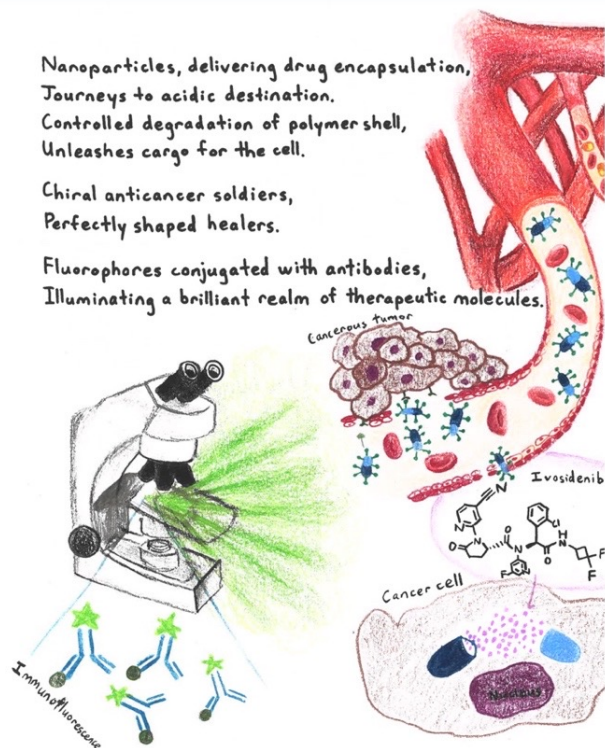 Nanoparticles, delivering drug encapsulation,
Journeys to acidic destination.
Controlled degradation of polymer shell,
Unleashes cargo for the cell.
Chiral anticancer soldiers,
Perfectly shaped healers.
Fluorophores conjugated with antibodies,
Illuminating a brilliant realm of therapeutic molecules.
Cancerous tumor
Ivosidenib
N
N
N
O
O
N
Cl
H
N
O
F
F
F
N
Cancer cell
Nucleus
Immunofluorescence